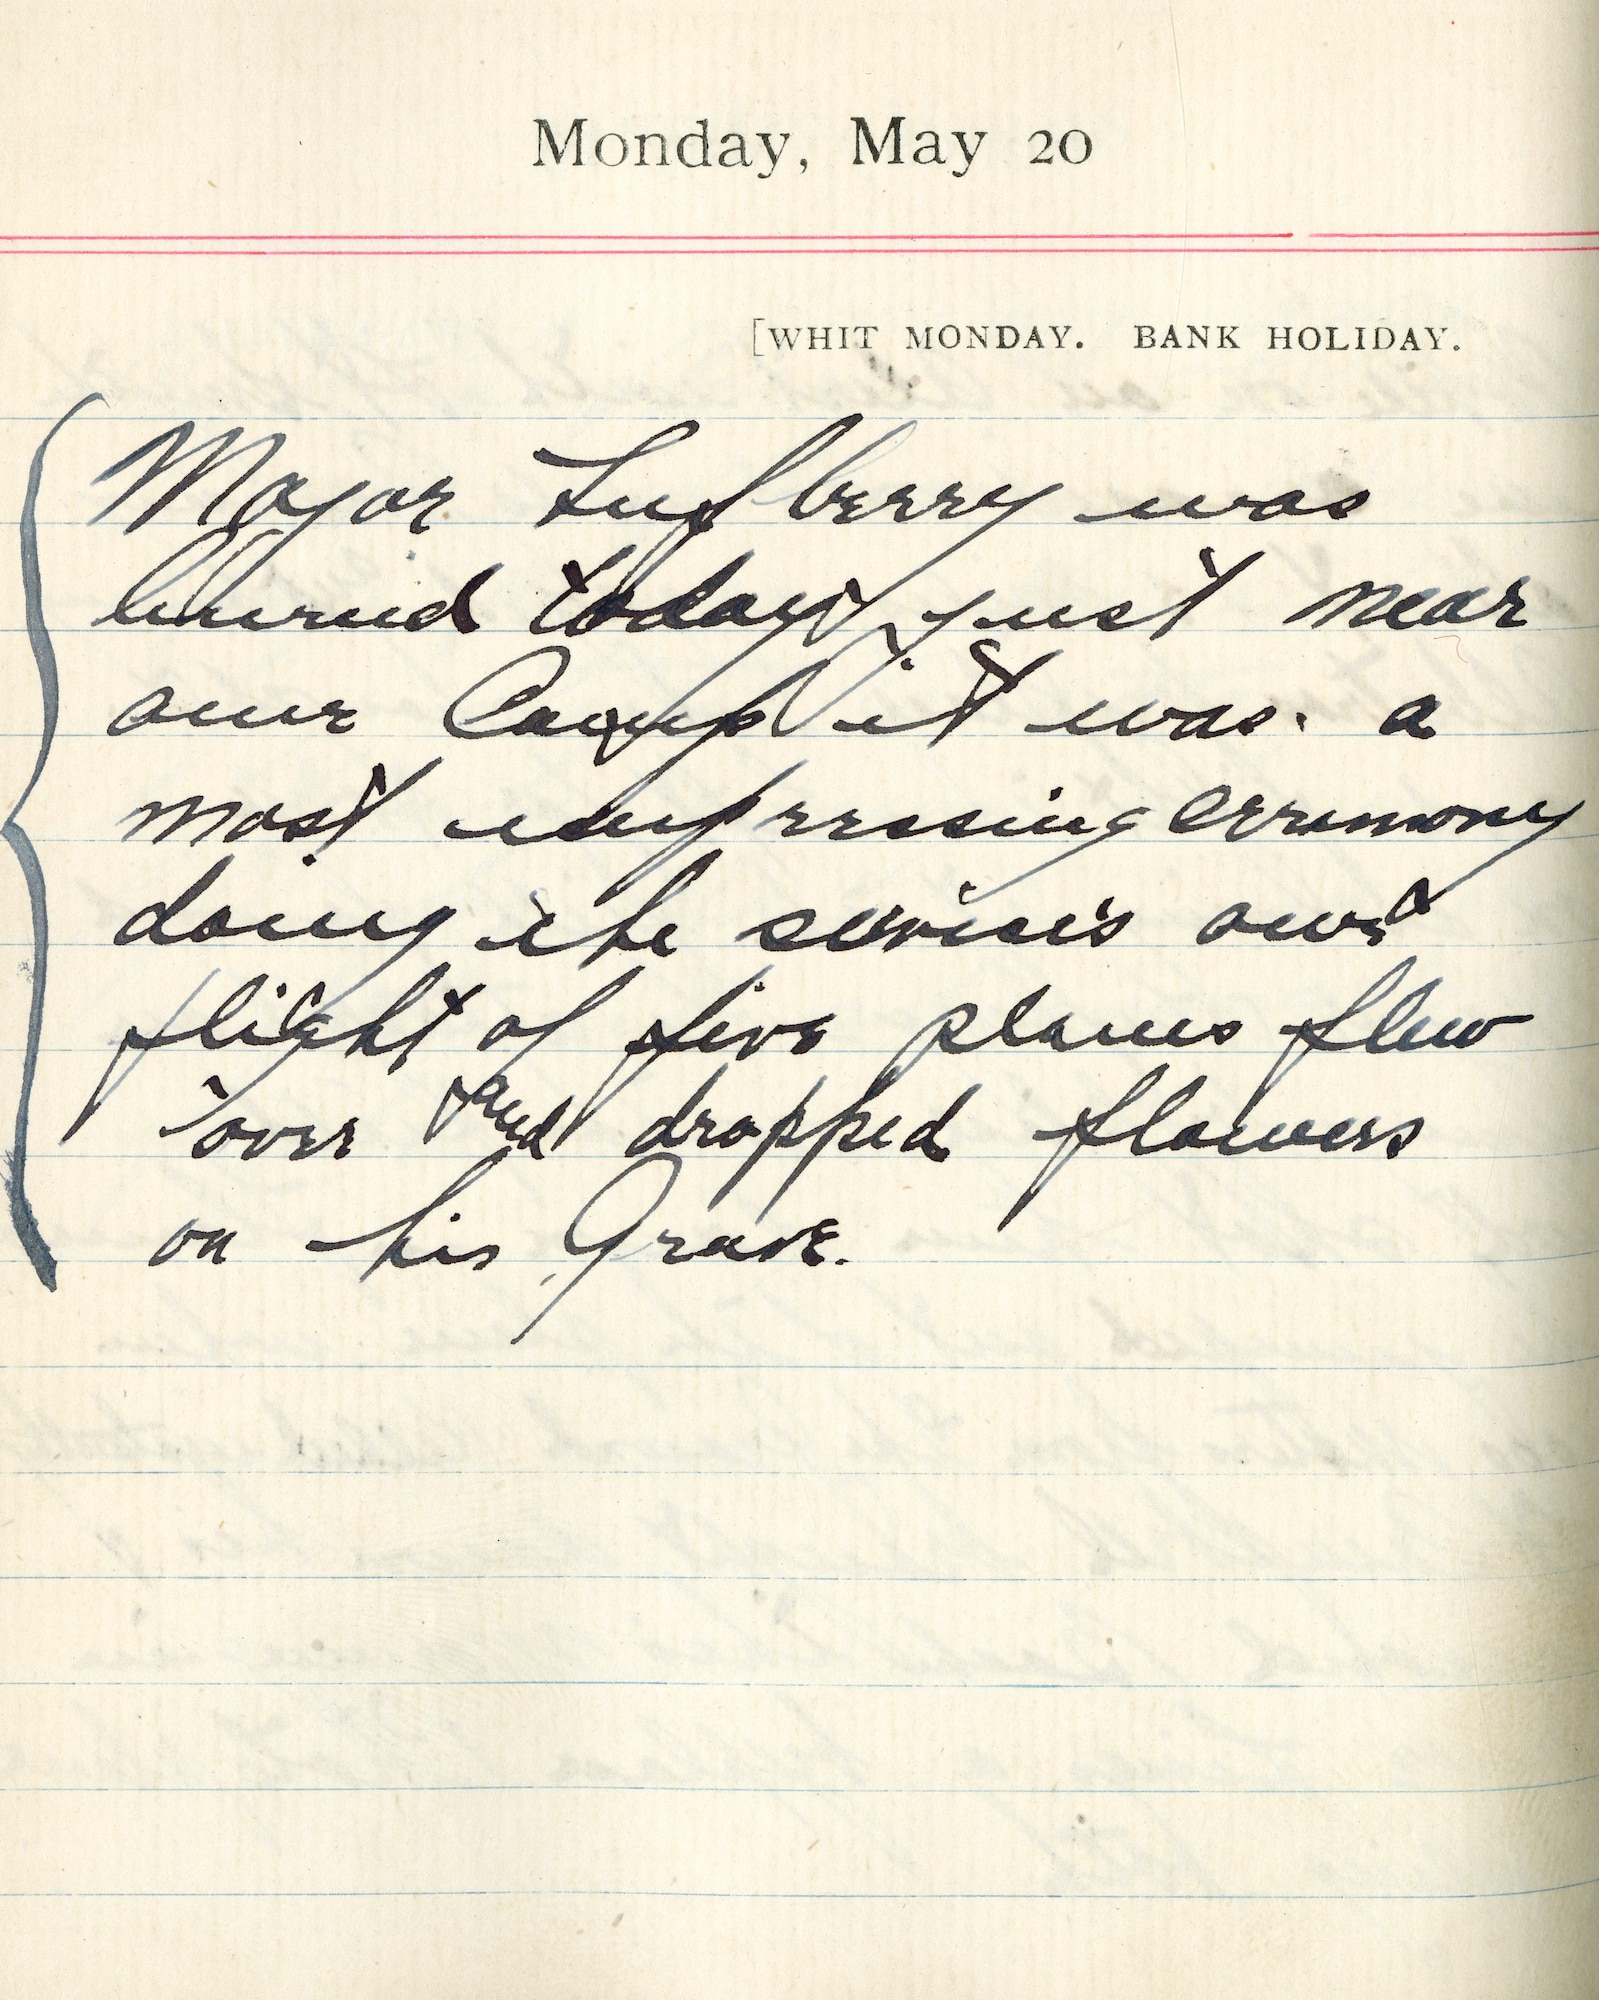 Monday, May 20
[WHIT MONDAY. BANK HOLIDAY.
Major Lufberry was
buried today, just near
our Camp it was a
most impressing ceremony
doing the services our
flight of five planes flew
over and dropped flowers
on his Grave.